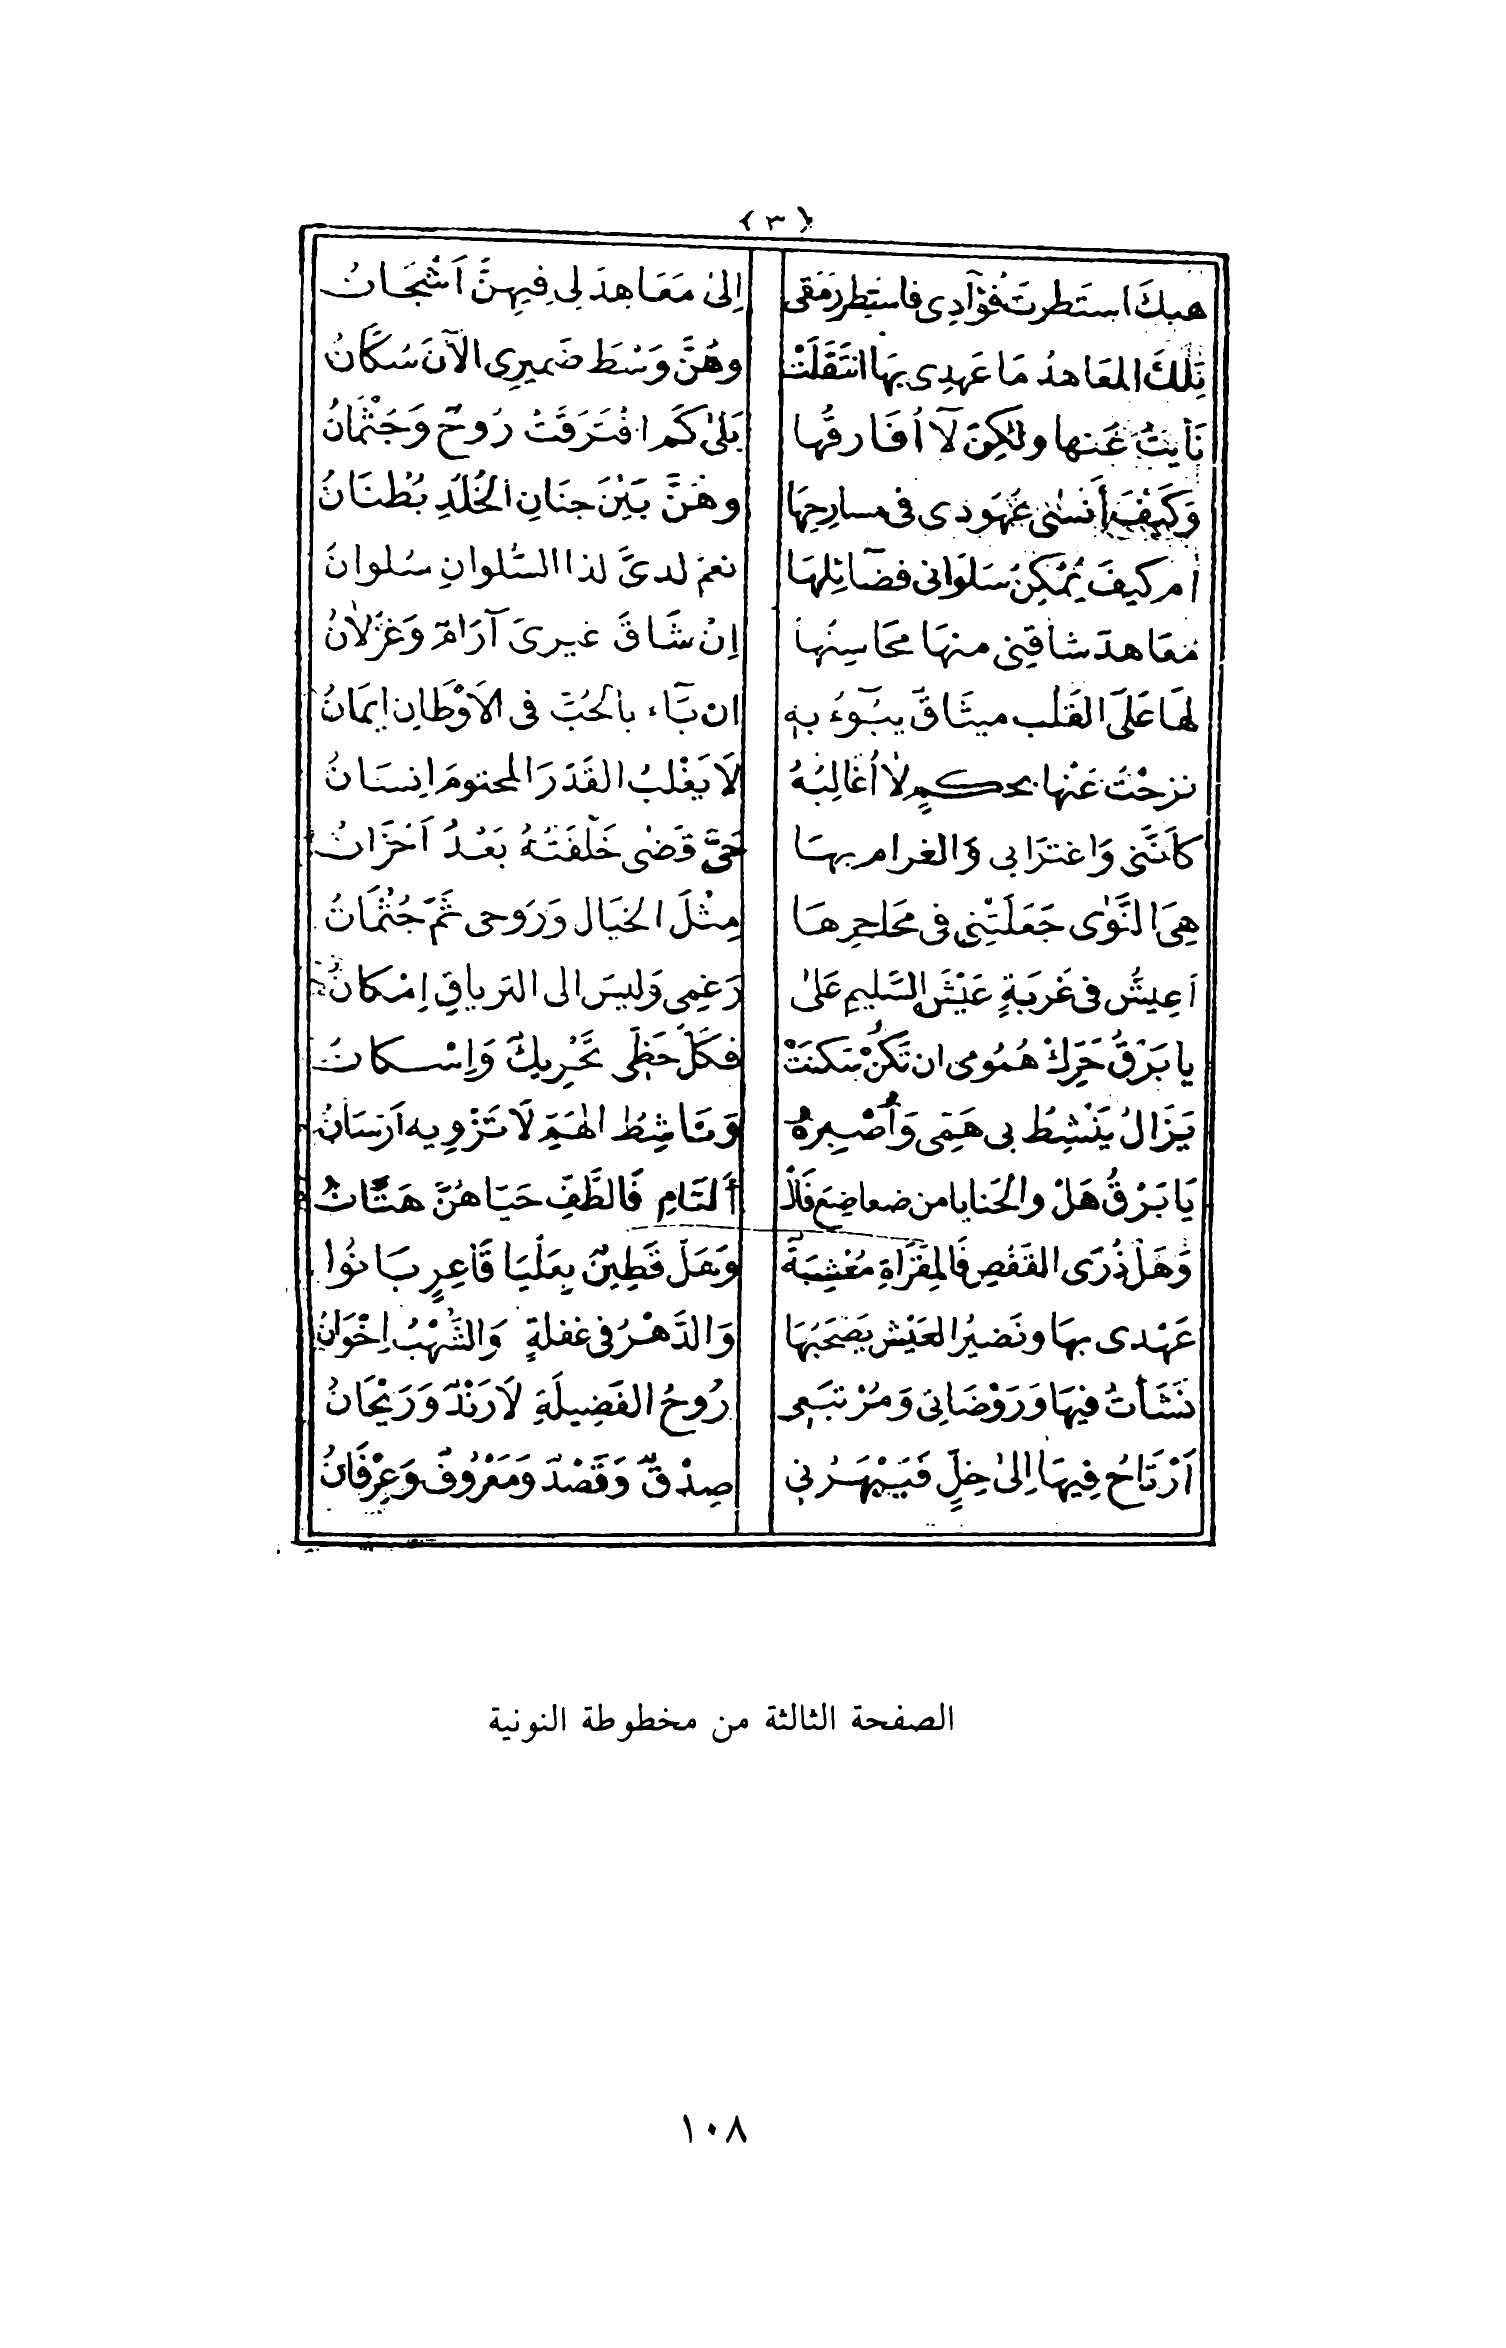 ﴿ ٣ ﴾
هبكَ استَطرتَ فُؤآدِى فاستَطِر رَمَقى إِلىٰ مَعَاهِدَ لِى فِيهِنَّ أَشْجَانُ
تِلكَ المعَاهدُ مَا عَهِدِى بهَا انتَقَلَتْ وهُنَّ وَسْطَ ضَميرِى الآنَ سُكَّانُ
نَأيتُ عَنها ولٰكِنَ لآ أُفَارقُها بَلىٰ كَم افْتَرَقَتْ رُوحٌ وَجَثْمَانُ
وَكَيْفَ أَنسٰى عُهَودى فى مسارِحِهَا وهُنَّ بَيْنَ جنَانِ الخُلدِ بُطْنَانُ
أم كيفَ يُمْكِنُ سَلوَانى فضَآئِلِهَا نعمْ لدىَّ لذا السُّلوانِ سُلوانُ
مَعَاهدَ شاقَنِى منهَا محَاسِنُها إِنْ شَاقَ غيرىَ آرَامٌ وَغزْلَانُ
لهَا عَلَى القَلْب ميثَاقٌ يبُوءُ بهِ ان بَآء بالحُبِّ فى الأوْطَانِ إيمَانُ
نزحْتُ عَنْها بحكمٍ لاٰ أُغَالِبُهُ لَا يَغْلبُ القَدَرَ المحتومَ إِنسَانُ
كَأنَّنى وَاغترَابى وَالغرام بهَا حَىٌّ قَضٰى خَلْفَتْهُ بَعْدُ أَحزَانُ
هِىَ النَّوٰى جَعَلَتْنِى فى مَحَاجِرِهَا مِثْلَ الخيَال وَرَوحى ثَمَّ جُثْمَانُ
أعِيشُ فى غَربَةٍ عَيْشَ السَّليمِ عَلىٰ رَغمِى وَليسَ الى التريَاقِ إِمْكانُ
يا بَرَقُ حَرِّكْ هُمُومى ان تَكُنْ سَكنَتْ فكَلّ حَظِّى تَحْرِيكٌ وَإِسْكانُ
يَزَالُ يَنْشِطُ بى هَمِّى وَأُصْبِرهُ وَنَاشِطُ الهَمِّ لَا تَزْوِيه أَرْسَانُ
يَا بَرْقُ هَلْ والحَنايا من ضعاضِعَ فَلأْ أَلتَامِ فَالطَّفِّ حَيَاهُنَّ هَتَّانُ
وَهَلْ ذُرَى القَفْصِ فَالمِقْرَاةِ مُعْشِبَةٌ وَهَلْ قَطِينٌ بِعَلْيَا قَاعِرٍ بَانُوا
عَهْدى بهَا ونَضيْرُ العَيْش يَصْحَبُهَا وَالدَّهْرُ فى غفلةٍ وَالشُّهْبُ إِخْوَانُ
نَشَأتُ فيهَا وَرَوْضَاتِى وَمُرْتبَعِى رُوحُ الفَضِيلَةِ لَارَنْدٌ وَرَيْحَانُ
أَرْتَاحُ فِيهَا إِلىٰ خِلٍّ فَيَبْهَرُنِى صِدْقٌ وَقَصْدٌ وَمَعْرُوفٌ وَعِرْفَانُ
الصفحة الثالثة من مخطوطة النونية
١٠٨